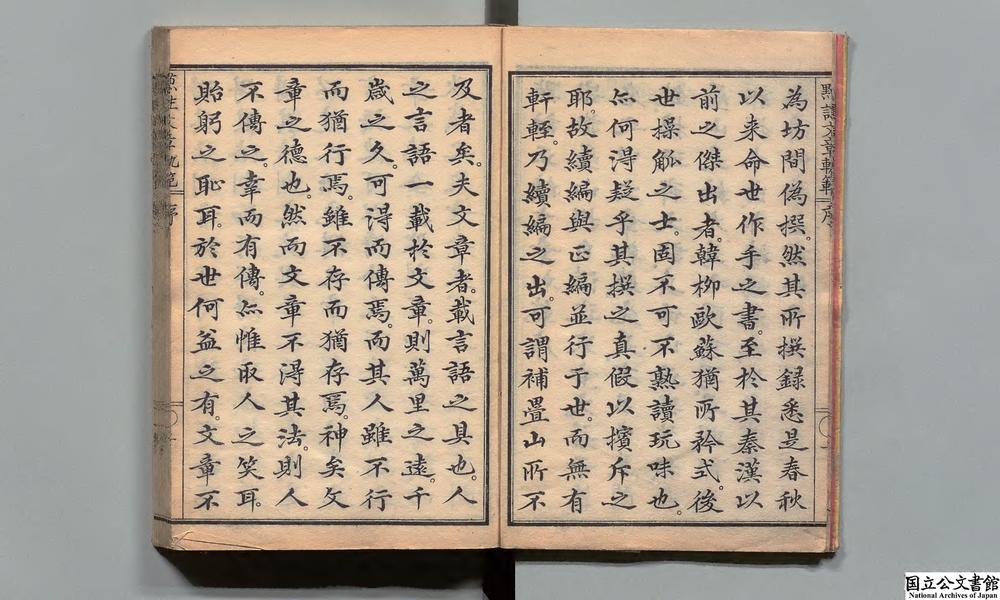 為坊間偽撰。然其所撰録悉是春秋
以来命世作手之書。至於其秦漢以
前之傑出者。韓柳歐蘇猶所矜式。後
世操觚之士。固不可不熟讀玩味也。
尒何得疑乎其撰之真假以擯斥之
耶。故續編與正編並行于世。而無有
軒輊。乃續編之出。可謂補疊山所不
及者矣。夫文章者。載言語之具也。人
之言語一載於文章。則萬里之遠。千
歳之久。可得而傳焉。而其人雖不行
而猶行焉。雖不存而猶存焉。神矣文
章之德也。然而文章不得其法。則人
不傳之。幸而有傳。尒惟取人之笑耳。
貽躬之恥耳。於世何益之有。文章不
国立公文書館
National Archives of Japan